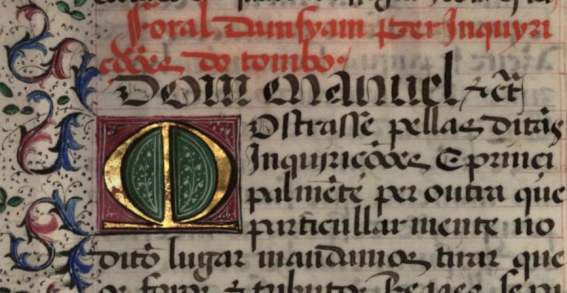 foral dansyam per Inquyri
coões do tombo.
Dom Manuel
Mostrasse pellas ditas
Inquiricoões E princi
palmẽte per outra que
particullarmente no
dito lugar mandamos tirar que
os foros & tributos